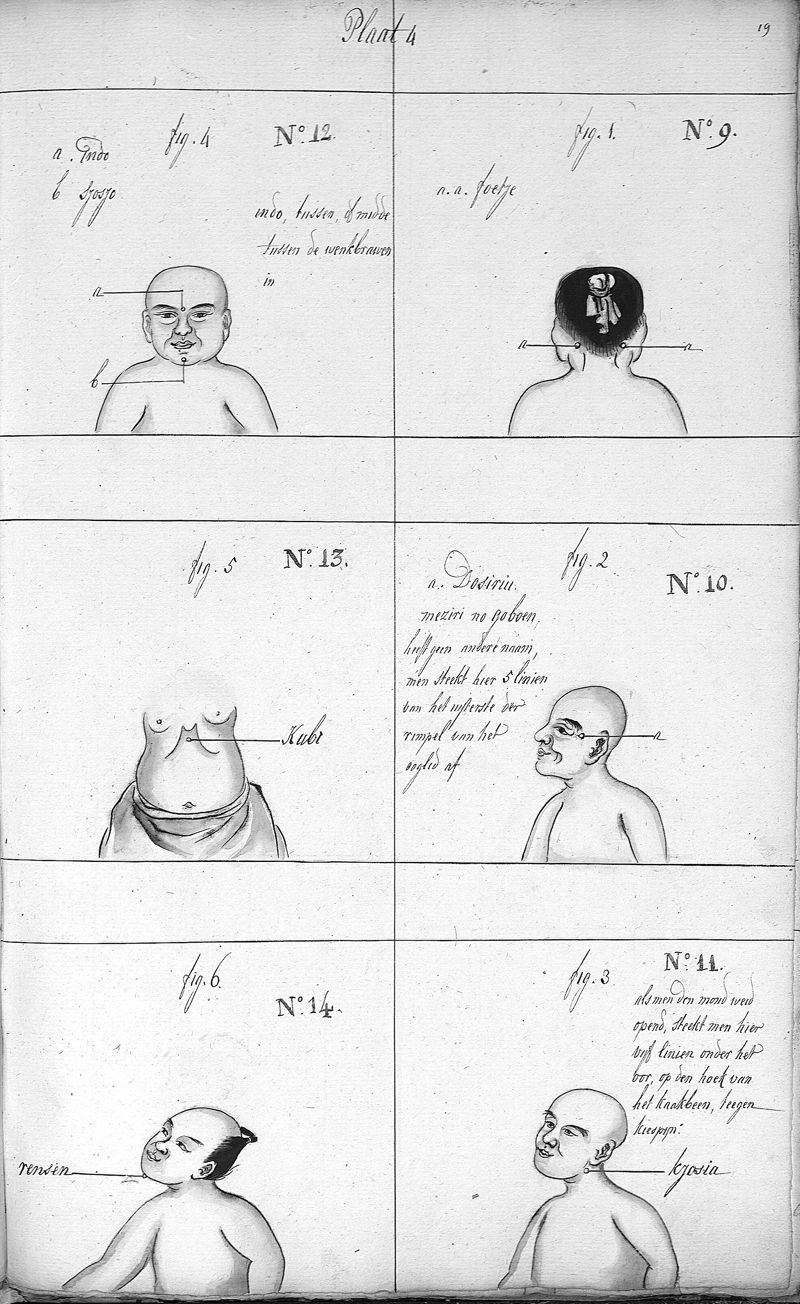 Plaat 4
19
fig. 4
N.o 12.
a. Indo
b sjosjo
indo, tussen, of midde
tussen de wenkbrawen
in
a
b
fig. 1.
N.o 9.
a. a. foetje
a
a
fig. 5
N.o 13.
Kubi
fig. 2
N.o 10.
a. Dosiriu.
meziri no goboen,
heeft geen andere naam,
men steekt hier 5 linien
van het uijterste der
rimpel van het
ooglid af
a
fig. 6.
N.o 14.
rensen
fig. 3
N.o 11.
als men den mond wed
opend, steekt men hier
vijf linien onder het
oor, op den hoek van
het kaakbeen, teegen
kiespijn.
kjosia